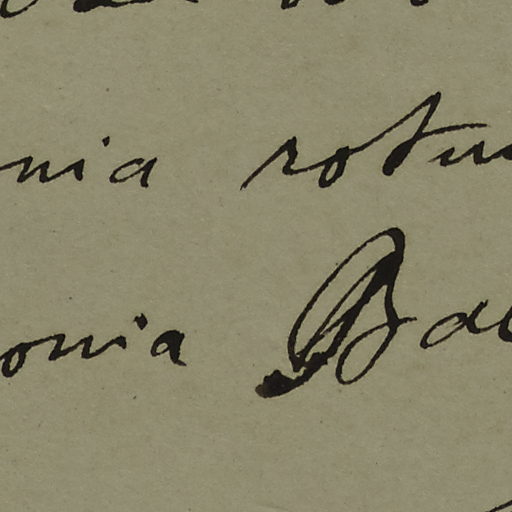 nia rotun
onia Bal